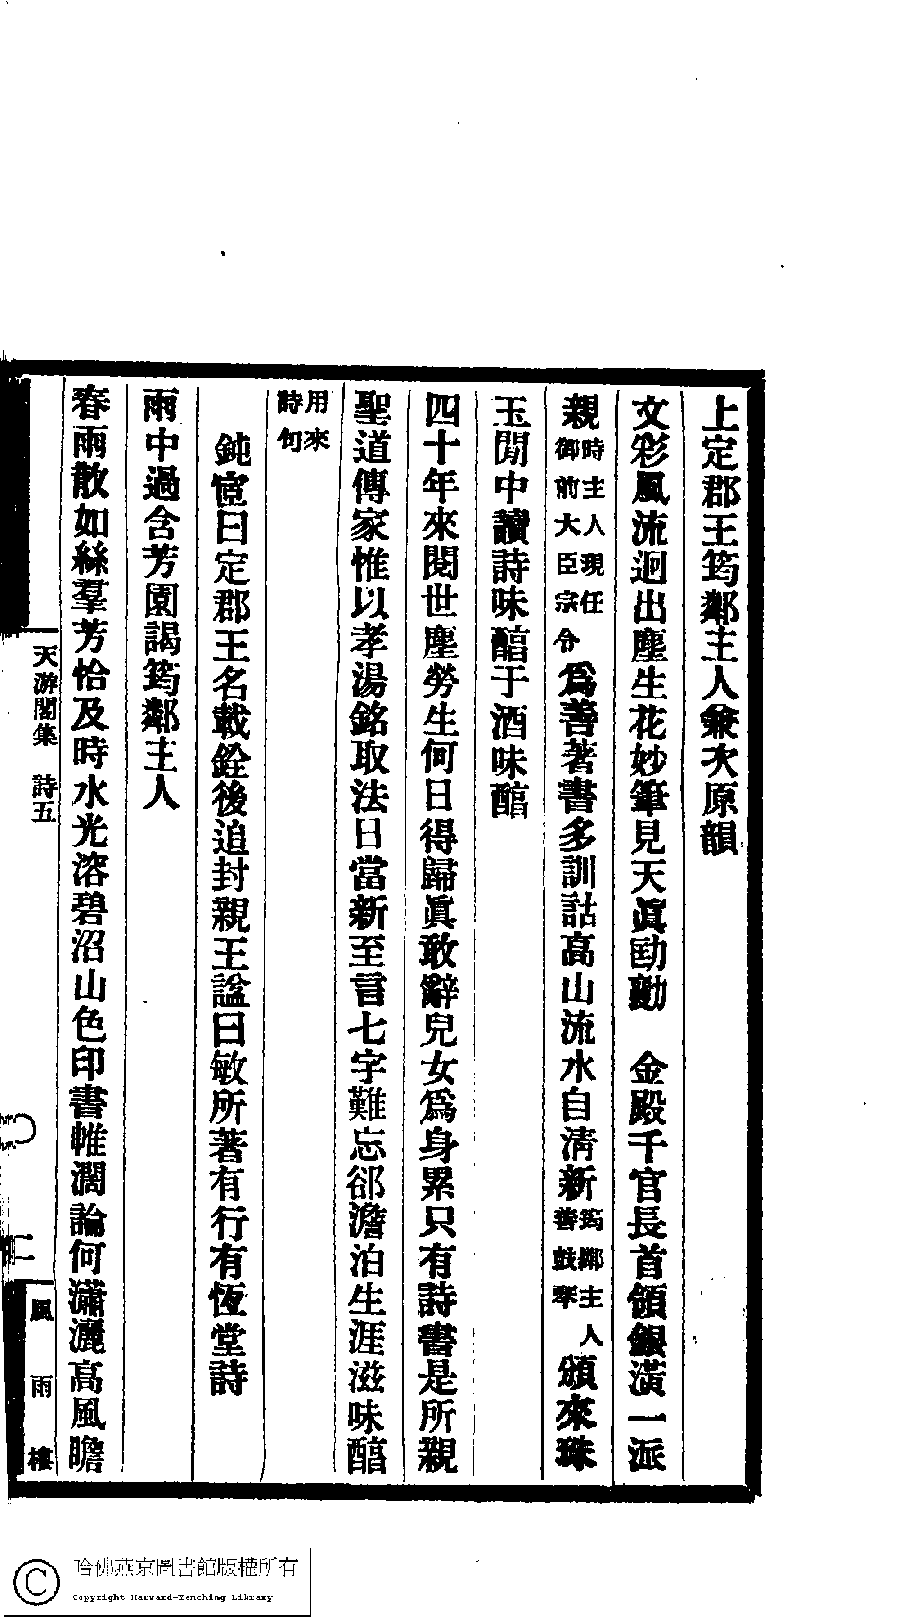 上定郡王筠鄰主人兼次原韻
文彩風流迥出塵生花妙筆見天眞 金殿千官長首領銀潢一派
親時主人現任御前大臣宗令爲善著書多訓詁高山流水自淸新筠鄰主人善鼓琴頒來珠
玉閒中讀詩味醰于酒味醰
四十年來閱世塵勞生何日得歸眞敢辭兒女爲身累只有詩書是所親
聖道傳家惟以孝湯銘取法日當新至言七字難忘郤澹泊生涯滋味醰
用來詩句
鈍宧曰定郡王名載銓後追封親王諡曰敏所著有行有恆堂詩
雨中過含芳園謁筠鄰主人
春雨散如絲羣芳恰及時水光溶碧沼山色印書帷濶論何瀟灑高風瞻
天游閣集 詩五
風雨樓
哈佛燕京圖書館版權所有
Copyright Harvard-Yenching Library